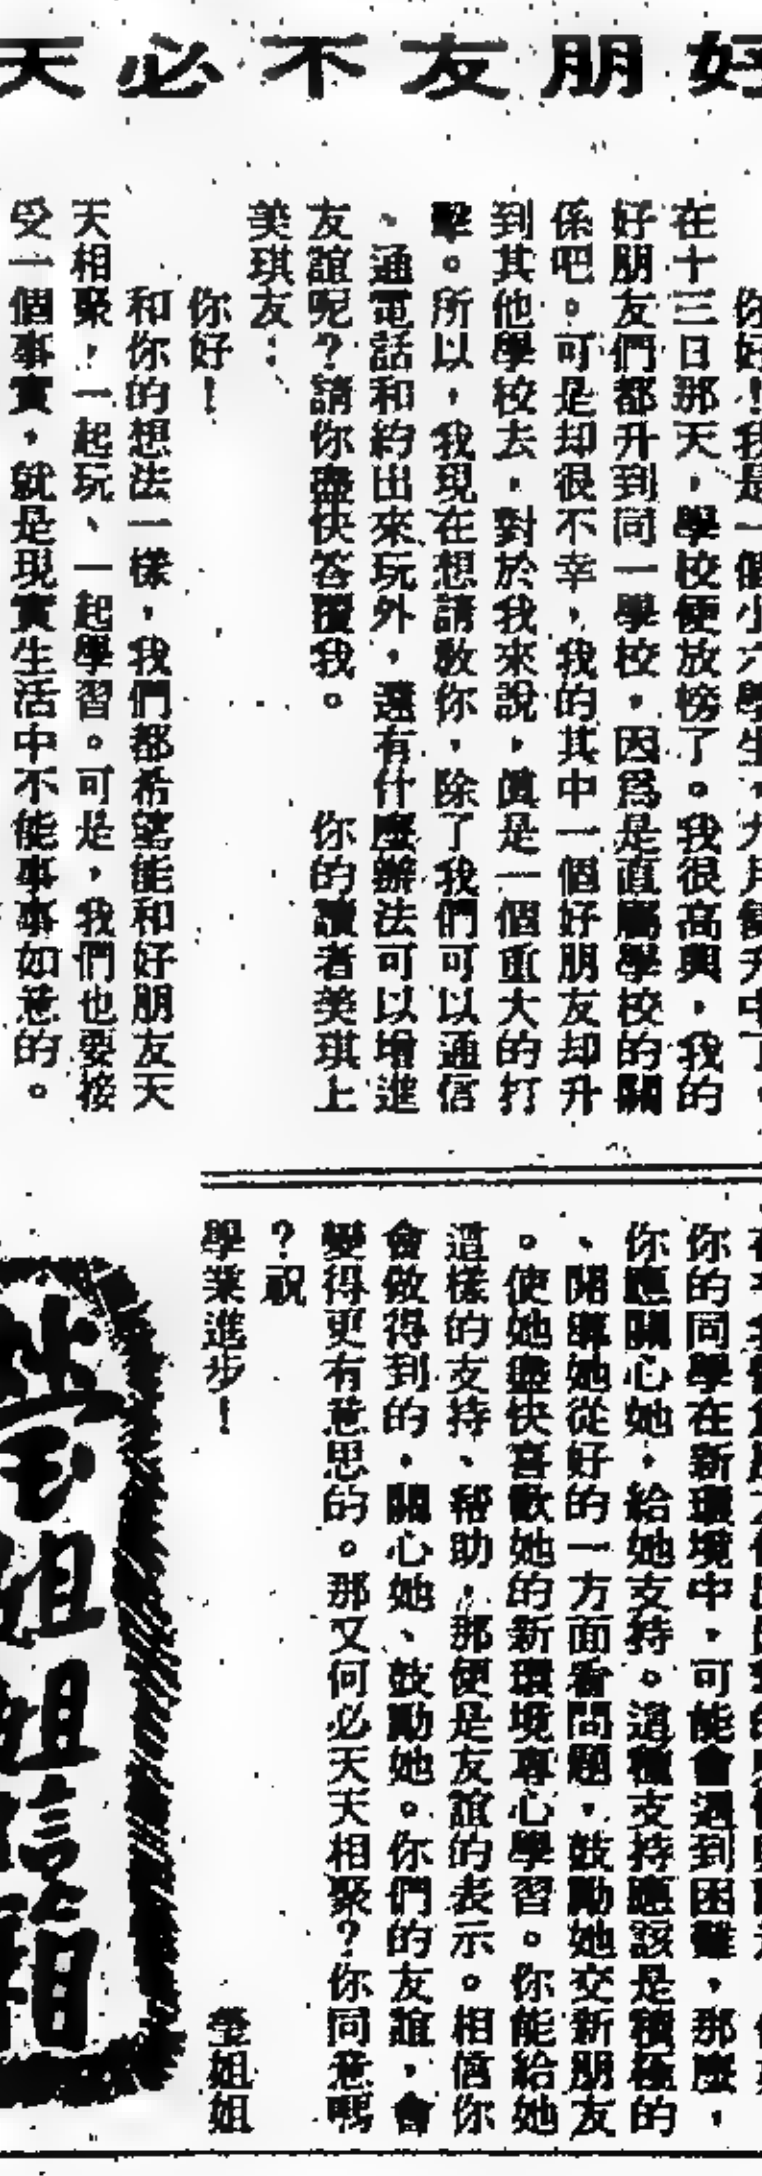 好朋友不必天
你好！我是一個小六學生，九月變升中了。
在十三日那天，學校便放榜了。我很高興，我的
好朋友們都升到同一學校，因爲是直屬學校的關
係吧。可是却很不幸，我的其中一個好朋友却升
到其他學校去，對於我來說，眞是一個重大的打
擊。所以，我現在想請敎你，除了我們可以通信
、通電話和約出來玩外，還有什麼辦法可以增進
友誼呢？請你盡快答覆我。
你的讀者美琪上
美琪友：
你好！
和你的想法一樣，我們都希望能和好朋友天
天相聚，一起玩、一起學習。可是，我們也要接
受一個事實，就是現實生活中不能事事如意的。
你的同學在新環境中，可能會遇到困難，那麼，
你應關心她，給她支持。這種支持應該是積極的
、開導她從好的一方面看問題，鼓勵她交新朋友
。使她盡快喜歡她的新環境專心學習。你能給她
這樣的支持、幫助，那便是友誼的表示。相信你
會做得到的，關心她、鼓勵她。你們的友誼，會
變得更有意思的。那又何必天天相聚？你同意嗎
？祝
學業進步！
瑩姐姐
瑩姐姐信箱